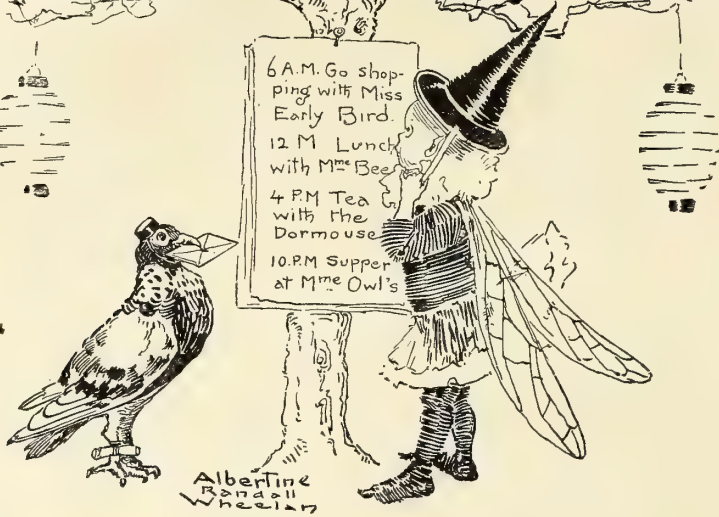 6 A.M. Go shop-
ping with Miss
Early Bird.
12 M Lunch
with Mme Bee
4 P.M Tea
with the
Dormouse
10.P.M Supper
at Mme Owl's
Albertine
Randall
Wheelan